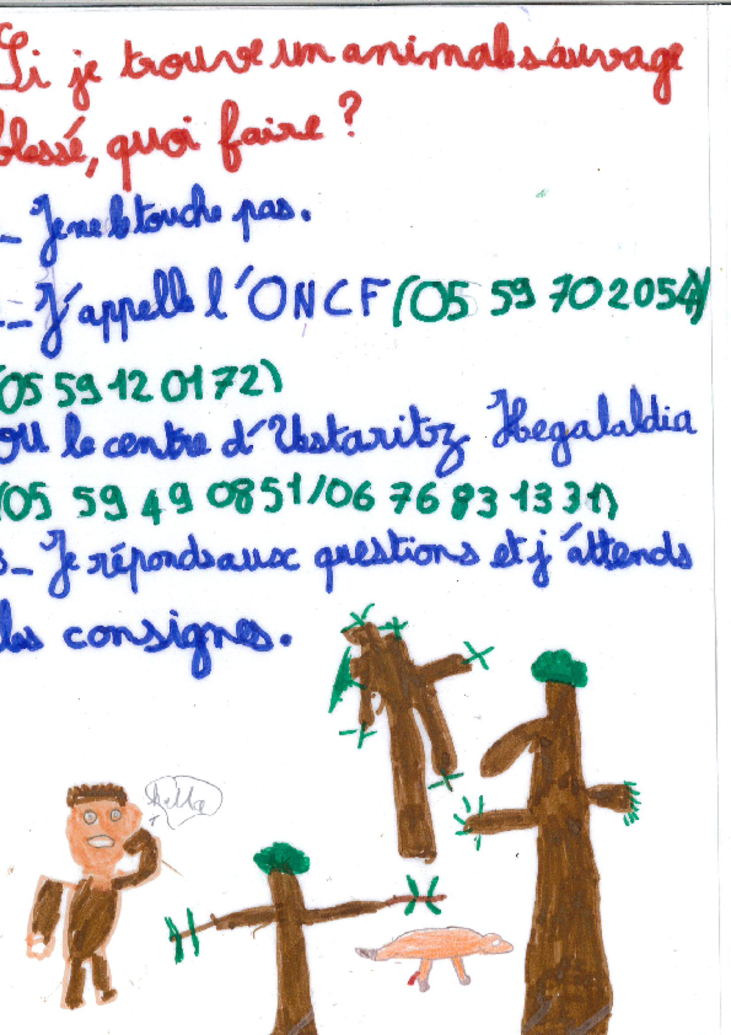 Si je trouve un animal sauvage
blessé, quoi faire ?
_ Je ne le touche pas.
_ J'appelle l'ONCF (05 59 70 20 54)
(05 59 12 01 72)
ou le centre d'Ustaritz Hegalaldia
(05 59 49 08 51/06 76 83 13 31)
3_ Je réponds aux questions et j'attends
les consignes.